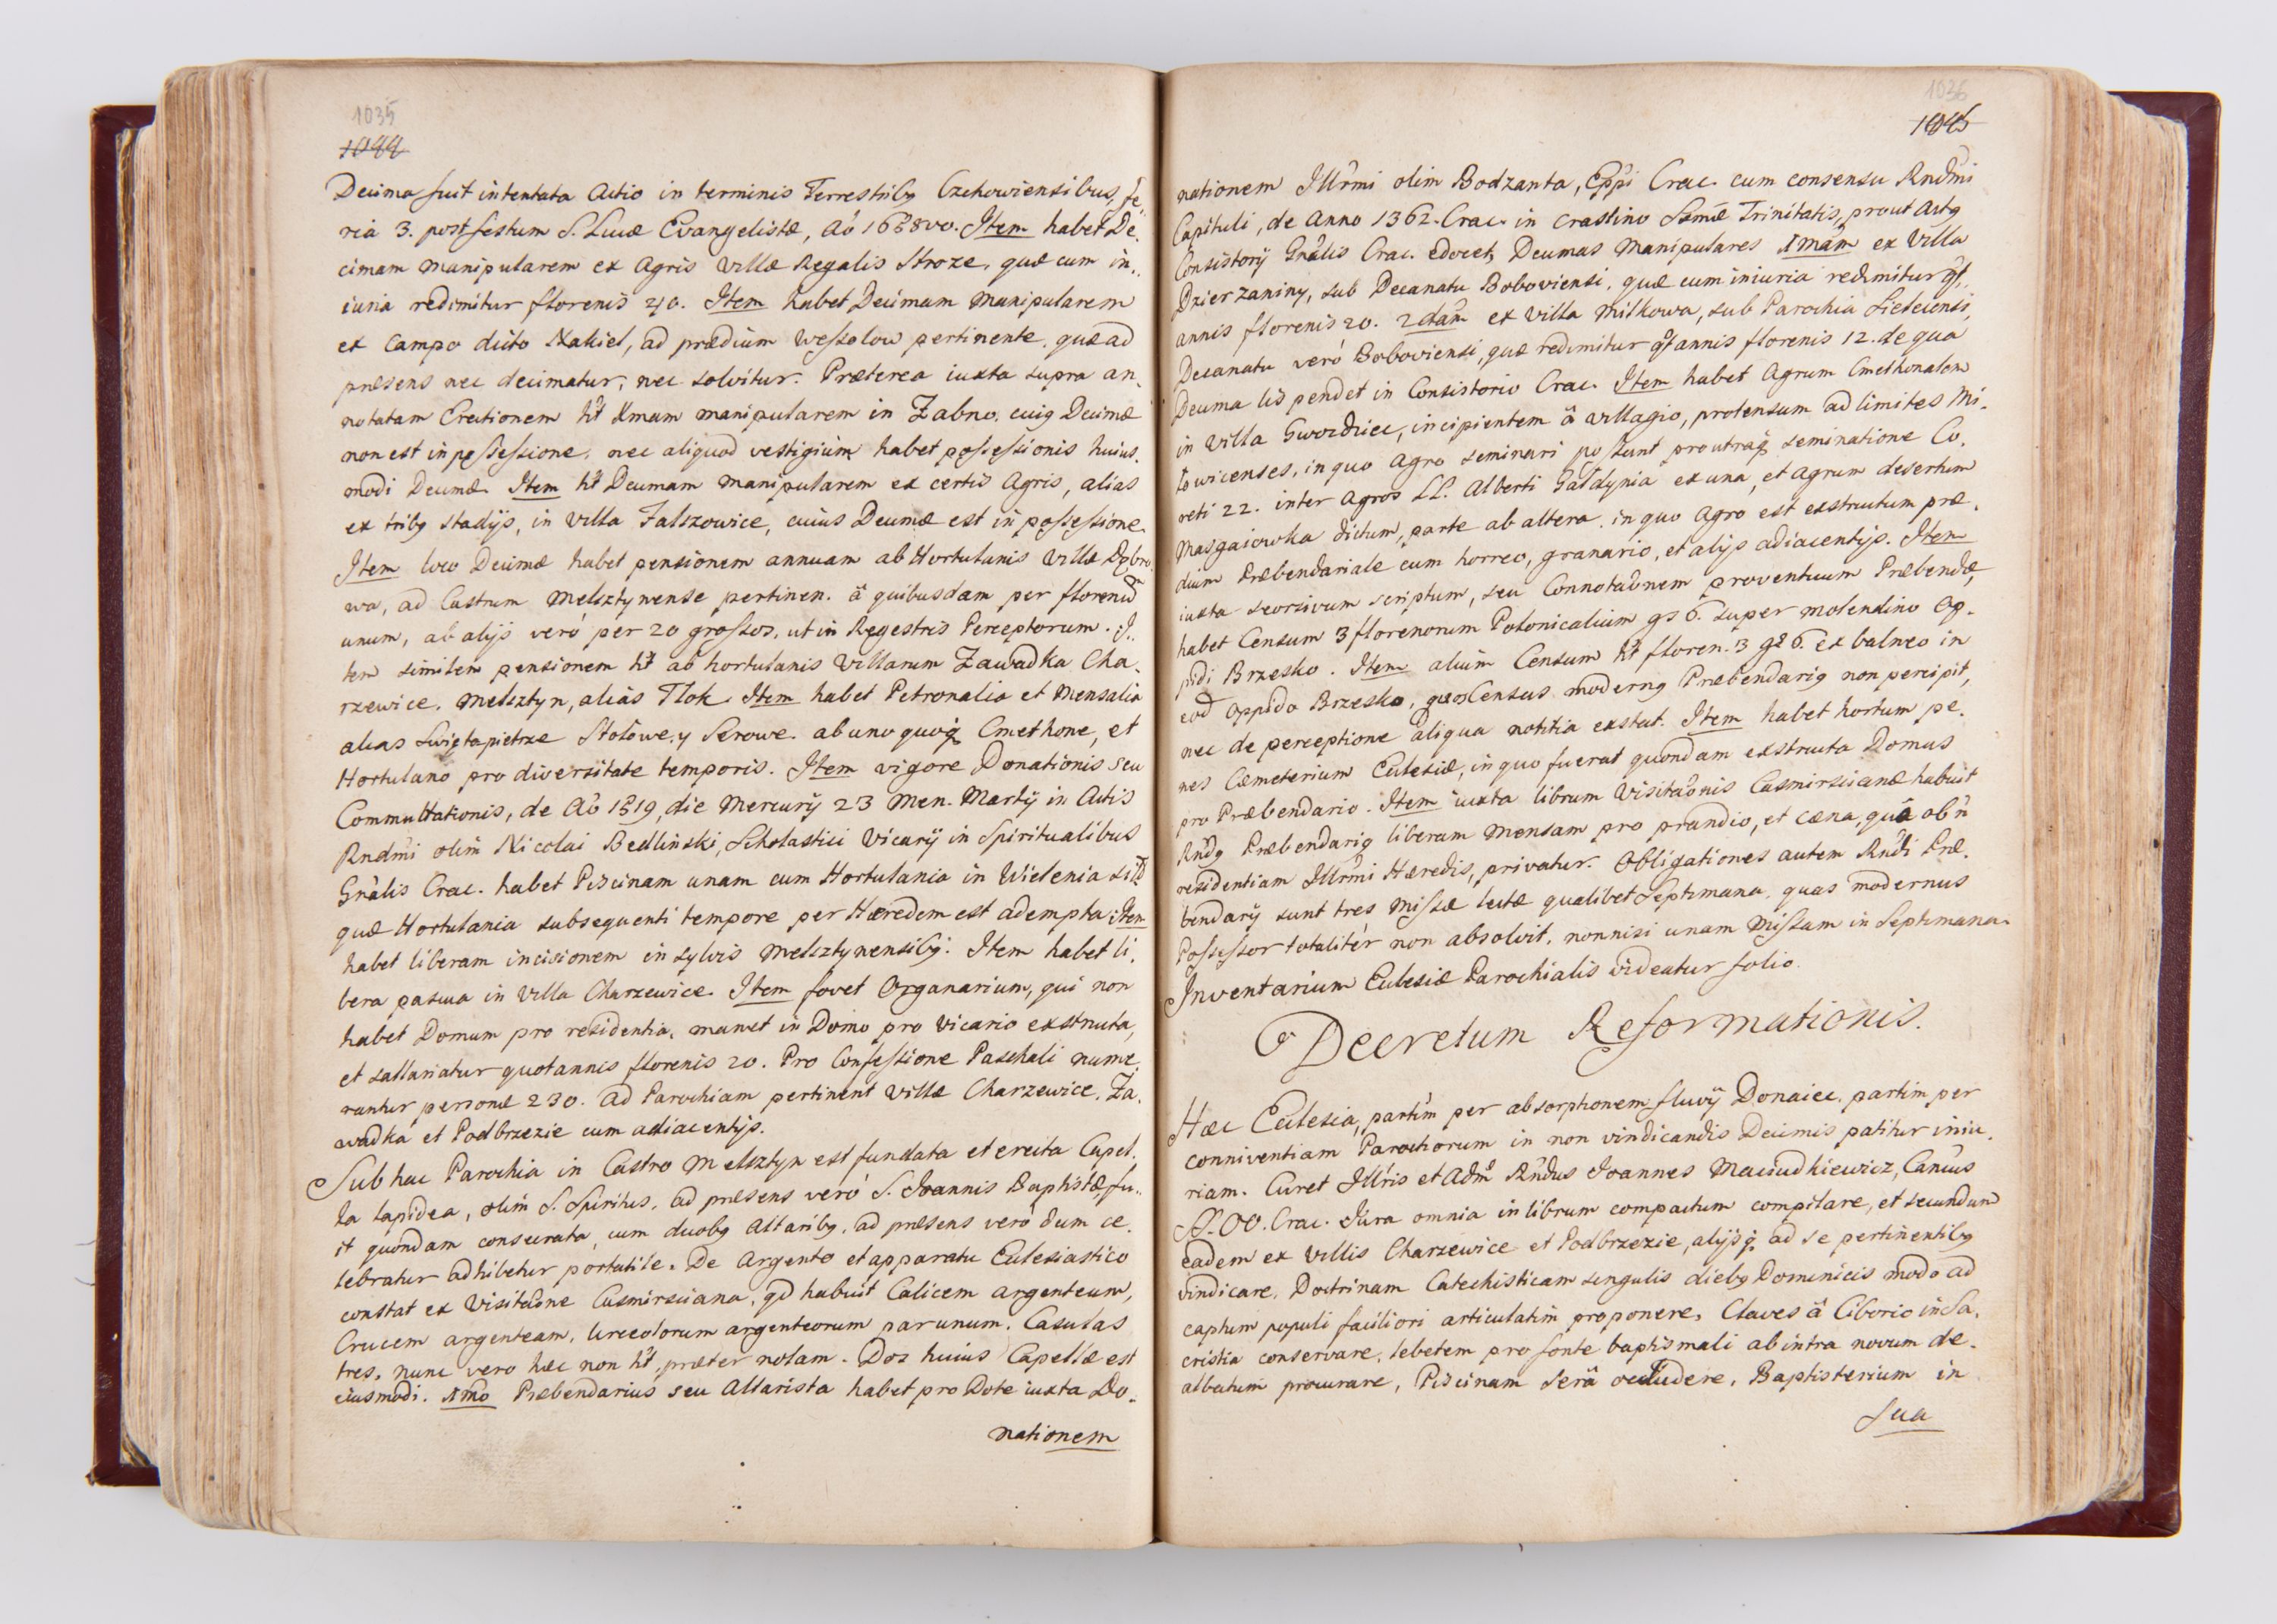 1035
1044
Decima fuit intentata Actio in terminis Terrestribg Czchowiensibus, fe„
ria 3. post festum S. Lucæ Evangelistæ, Aô 1688vo. Item habet De„
cimam manipularem ex Agris Villæ Regalis Stroze, quæ cum in„
iuria redimitur florenis 40. Item habet Decimam Manipularem
ex Campo dicto Nakiel, ad prædium Wesolow pertinente, quæ ad
præsens nec decimatur, nec solvitur. Præterea iuxta supra an„
notatam Erectionem ht Xmam manipularem in Zabno, cuig Decimæ
non est in possessione, nec aliquod vestigium habet possessionis huius„
modi Decimæ. Item ht Decimam manipularem ex certis Agris, alias
ex tribg stadijs, in Villa Falszowice, cuius Decimæ est in possessione.
Item loco Decimæ habet pensionem annuam ab Hortulanis Villæ Dąbro„
wa, ad Castrum Melsztynense pertinen. â quibusdam per florenũ
unum, ab alijs verò per 20 grossos, ut in Regestris Perceptorum. I„
tem similem pensionem ht ab hortulanis Villarum Zawadka Cha„
rzewice, Melsztyn, alias Tlok. Item habet Petronalia et Mensalia
alias Swiętapietrze Stołowe, y Serowe. ab uno quoq̃ Cmethone, et
Hortulano pro diversitate temporis. Item vigore Donationis seu
Commuttationis, de Aô 1519, die Mercurij 23 Men. Martij in Actis
Rndmi olim Nicolai Bedlinski, Scholastici Vicarij in Spiritualibus
Gnâlis Crac. habet Piscinam unam cum Hortulania in Wielenia
quæ Hortulania subsequenti tempore per Hæredem est adempta. Item
habet liberam incisionem in sylvis Melsztynensibg. Item habet li„
bera pascua in Villa Charzewice. Item fovet Organarium, qui non
habet Domum pro residentia, manet in Domo pro Vicario exstructa,
et sallariatur quotannis florenis 20. Pro Confessione Paschali nume„
rantur personæ 230. Ad Parochiam pertinent Villæ Charzewice, Za„
wadka et Podbrzezie cum adiacentijs.
Sub hac Parochia in Castro Melsztyn est fundata et erecta Capel„
la lapidea, olim S. Spiritus, ad præsens verò S. Joannis Baptistæ, fu„
it quondam consecrata, cum duobg Altaribg, ad præsens verò dum ce„
lebratur adhibetur portatile. De Argento et apparatu Ecclesiastico
constat ex Visitaône Casmirsciana, qd habuit Calicem argenteum,
Crucem argenteam, Urceolorum argenteorum par unum, Casulas
tres, nunc vero hæc non ht, præter nolam. Dos huius Capellæ est
eiusmodi. 1mo Præbendarius seu Altarista habet pro Dote iuxta Do„
nationem
1036
1045
nationem Illrmi olim Bodzanta, Eppi Crac. cum consensu Rndmi
Capituli, de Anno 1362. Crac. in crastino Ssmæ Trinitatis, prout Actg
Consistorij Gnâlis Crac. edocet, Decimas Manipulares 1mam ex Villa
Dzierzaniny, sub Decanatu Boboviensi, quæ cum iniuria redimitur qt„
annis florenis 20. 2dam ex Villa Milkowa, sub Parochia Sieteiensi,
Decanatu verò Boboviensi, quæ redimitur qtannis florenis 12. de qua
Decima lis pendet in Consistorio Crac. Item habet Agrum Cmethonalem
in Villa Gwozdziec, incipientem â villagio, protensum ad limites Mi„
łowicenses, in quo Agro seminari possunt pro utraq̃ seminatione Co„
reti 22. inter Agros LL. Alberti Gałdynia ex una, et Agrum desertum
Masgaiowka dictum, parte ab altera. in quo Agro est exstructum præ„
dium Præbendariale cum horreo, granario, et alijs adiacentijs. Item
iuxta seorsivum scriptum, seu Connotaônem proventuum Præbendæ,
habet Censum 3 florenorum Polonicalium gs 6. super molendino Op„
pidi Brzesko. Item alium Censum ht floren. 3 gs 6. ex balneo in
eod Oppido Brzesko, quos Census moderng Præbendarig non percipit,
nec de perceptione aliqua notitia exstat. Item habet hortum pe„
nes Cæmeterium Ecclesiæ, in quo fuerat quondam exstructa Domus
pro Præbendario. Item iuxta librum Visitaônis Casmirscianæ habuit
Rndg Præbendarig liberam mensam pro prandio, et cæna, quâ ob ñ
residentiam Illrmi Hæredis, privatur. Obligationes autem Rndi Præ„
bendarij sunt tres Missæ lectæ qualibet Septimana, quas modernus
Possessor totalitèr non absolvit, nonnisi unam Missam in Septimana.
Inventarium Ecclesiæ Parochialis videatur folio.
Decretum Reformationis.
Hæc Ecclesia, partim per absorptionem fluvij Donaiec, partim per
conniventiam Parochorum in non vindicandis Decimis patitur iniu„
riam. Curet Illris et Adm Rndus Joannes Maciudkiewicz, Canus
SS. OO. Crac. Jura omnia in librum compactum compilare, et secundum
eadem ex Villis Charzewice et Podbrzezie, alijsq̃ ad se pertinentibg
vindicare, Doctrinam Catechisticam singulis diebg Dominicis modo ad
captum populi faciliori articulatim proponere, Claves â Ciborio in Sa„
cristia conservare, lebetem pro fonte baptismali ab intra novum de„
albatum procurare, Piscinam serâ occludere, Baptisterium in
sua